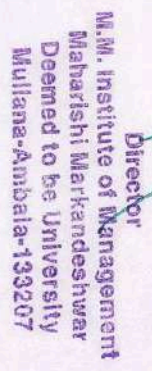 Director
M.M. Institute of Management
Maharishi Markandeshwar
Deemed to be University
Mullana-Ambala-133207